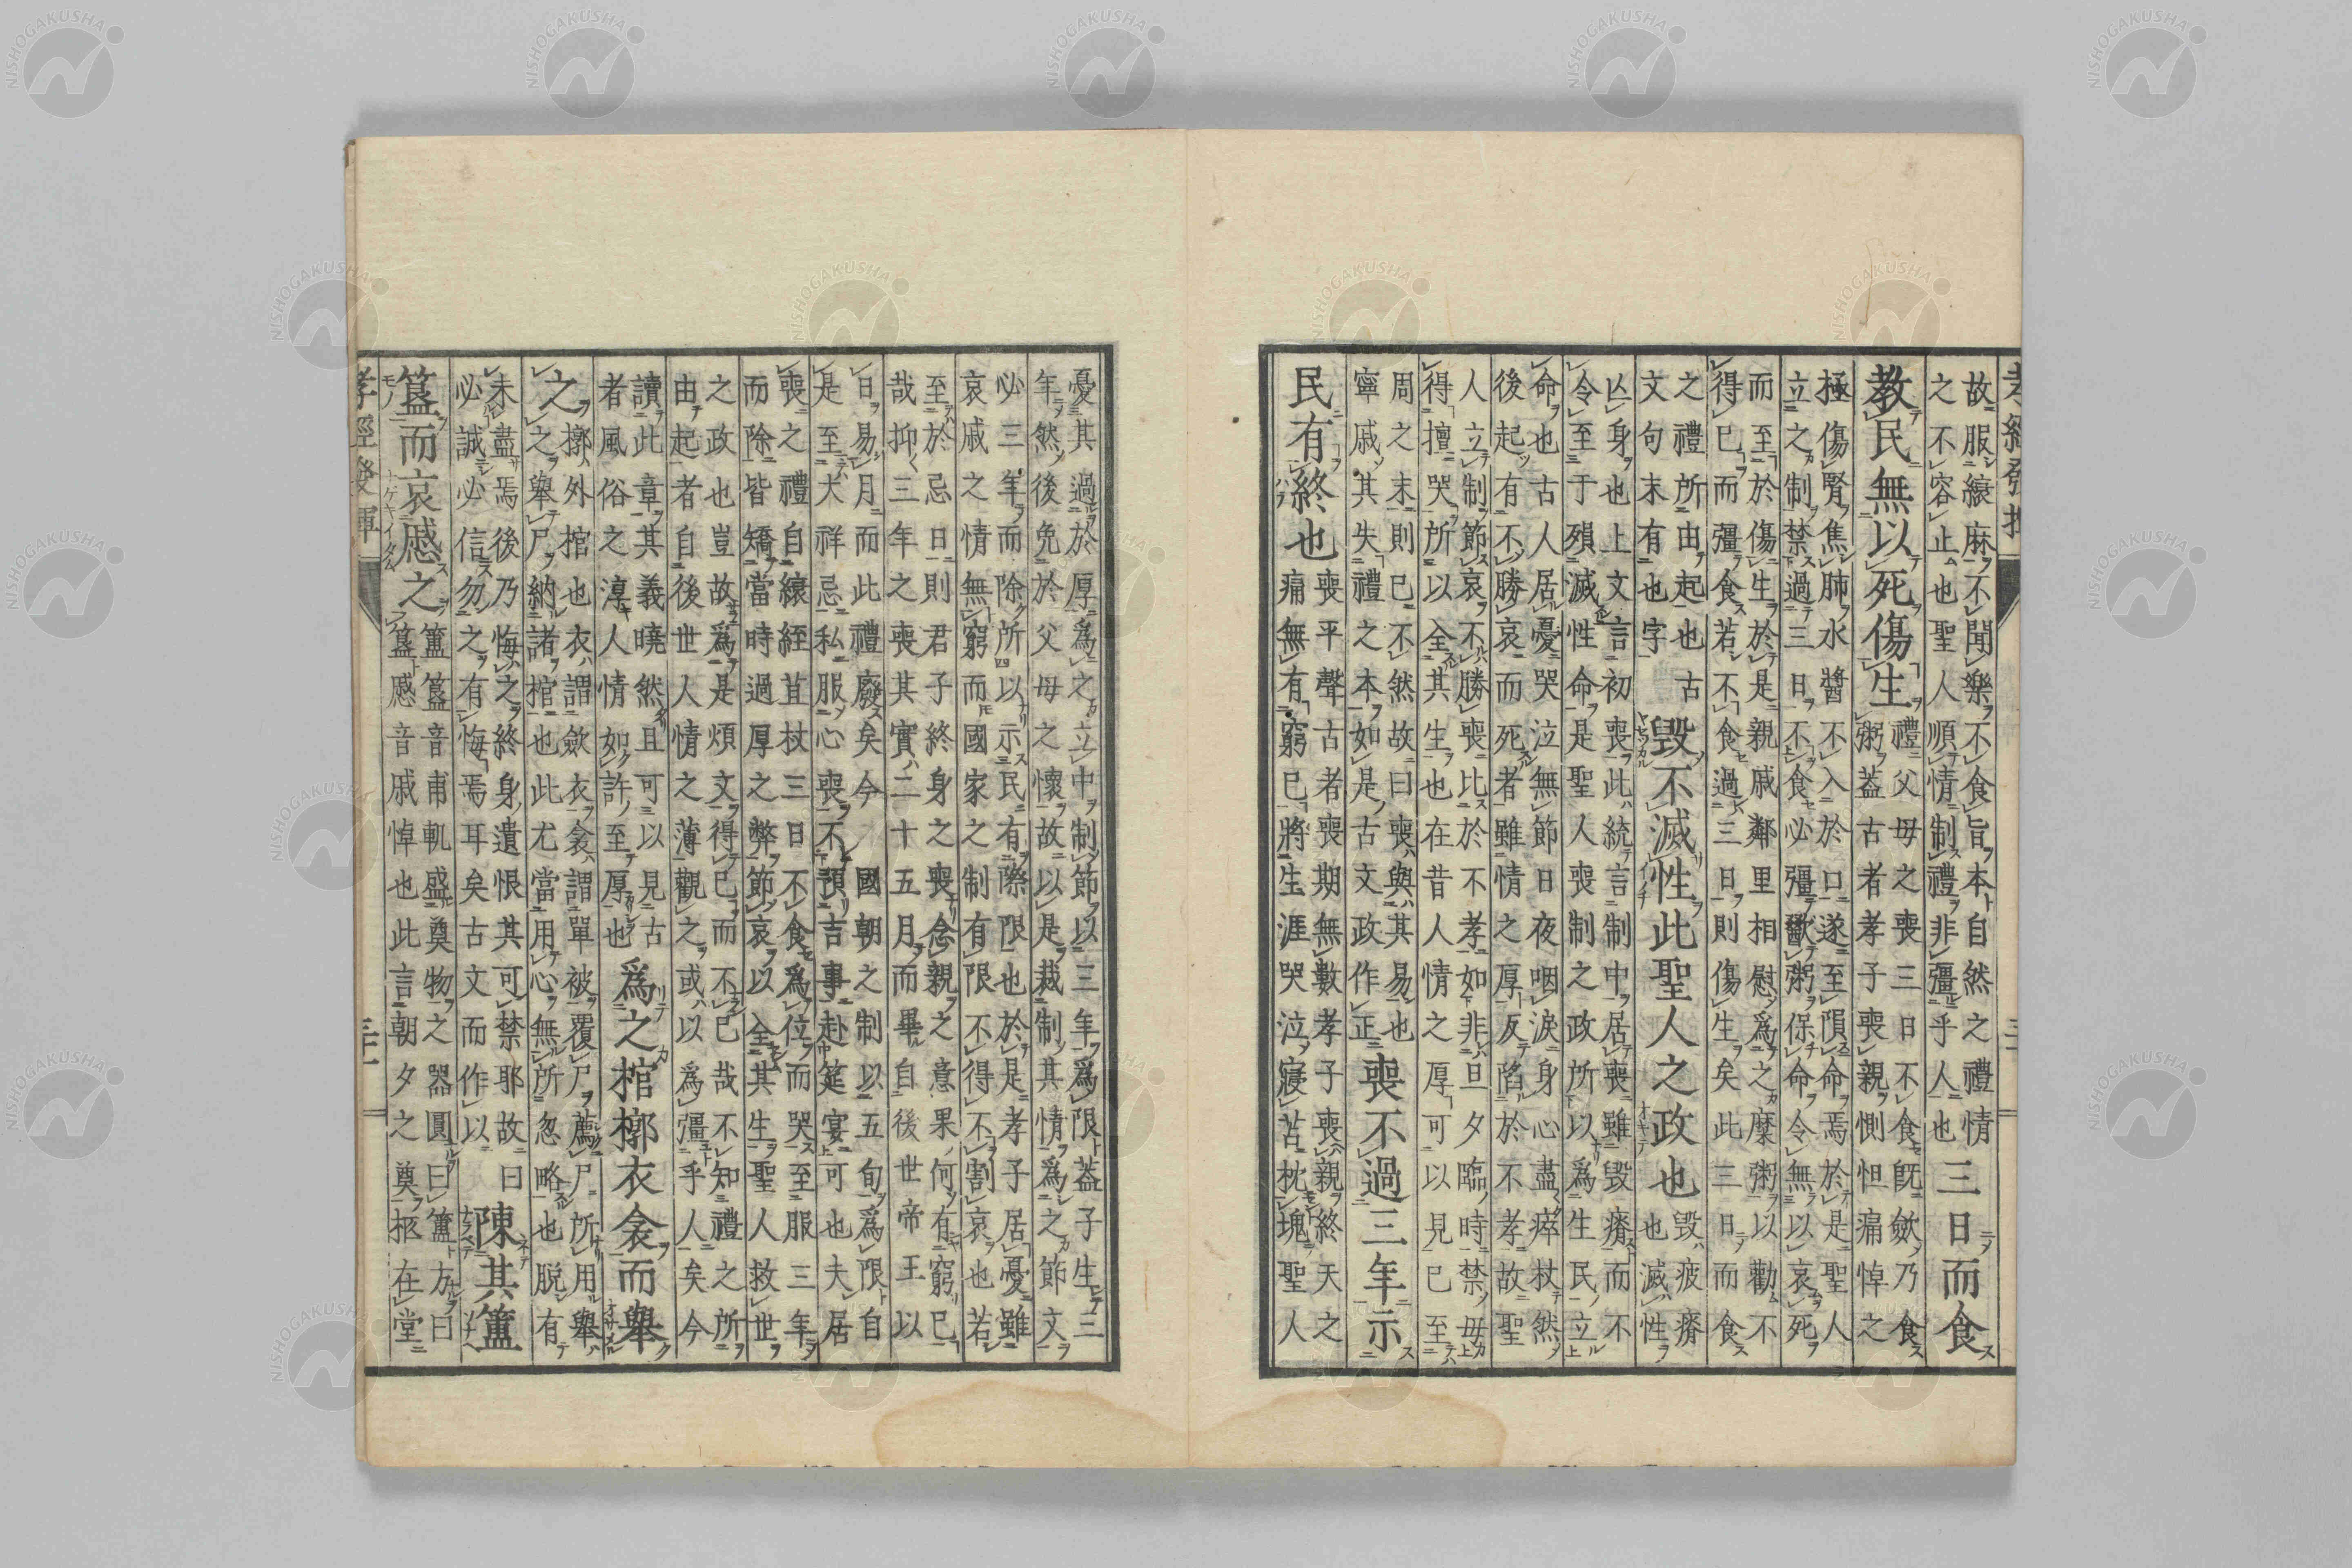 故服縗麻不聞樂不食旨本自然之禮情
之不容止也聖人順情制禮非彊乎人也
三日而食
教民無以死傷生
禮父母之喪三日不食既歛乃食
粥蓋古者孝子喪親惻怛痛悼之
極傷腎焦肺水醬不入於口遂至隕命焉於是聖人
立之制禁過三日不食必彊歠粥保命令無以哀死
而至於傷生於是親戚鄰里相慰爲之糜粥以勸不
得已而彊食若不食過三日則傷生矣此三日而食
之禮所由起也古
文句末有也字
毀不滅性此聖人之政也
毀疲瘠
也滅性
亾身也上文言初喪此統言制中居喪雖毀瘠而不
令至于殞滅性命是聖人喪制之政所以爲生民立
命也古人居憂哭泣無節日夜咽淚身心盡瘁杖然
後起有不勝哀而死者雖情之厚反陷於不孝故聖
人立制節哀不勝喪比於不孝如非旦夕臨時禁毋
得擅哭所以全其生也在昔人情之厚可以見已至
周之末則已不然故曰喪與其易也
寧戚其失禮之本如是古文政作正
喪不過三年示
民有終也
喪平聲古者喪期無數孝子喪親終天之
痛無有窮已將生涯哭泣寢苫枕塊聖人
憂其過於厚爲之立中制節以三年爲限蓋子生三
年然後免於父母之懷故以是裁制其情爲之節文
必三年而除所以示民有際限也於是孝子居憂雖
哀戚之情無窮而國家之制有限不得不割哀也若
至於忌日則君子終身之喪念親之意果何有窮已
哉抑三年之喪其實二十五月而畢自後世帝王以
日易月而此禮廢矣今 國朝之制以五旬爲限自
是至大祥忌私服心喪不預吉事赴筵宴可也夫居
喪之禮自縗絰苴杖三日不食爲位而哭至服三年
而除皆矯當時過厚之弊節哀以全其生聖人救世
之政也豈故爲是煩文得已而不已哉不知禮之所
由起者自後世人情之薄觀之或以爲彊乎人矣今
讀此章其義曉然且可以見古
者風俗之淳人情如許至厚也
爲之棺槨衣衾而舉
之
槨外棺也衣謂歛衣衾謂單被覆尸薦尸所用舉
之舉尸納諸棺也此尤當用心無所忽略也脱有
未盡焉後乃悔之終身遺恨其可禁耶故曰
必誠必信勿之有悔焉耳矣古文而作以
陳其簠
簋而哀慼之
簠簋音甫軌盛奠物之器圓曰簠方曰
簋慼音戚悼也此言朝夕之奠柩在堂
孝經發揮
NISHOGAKUSHA